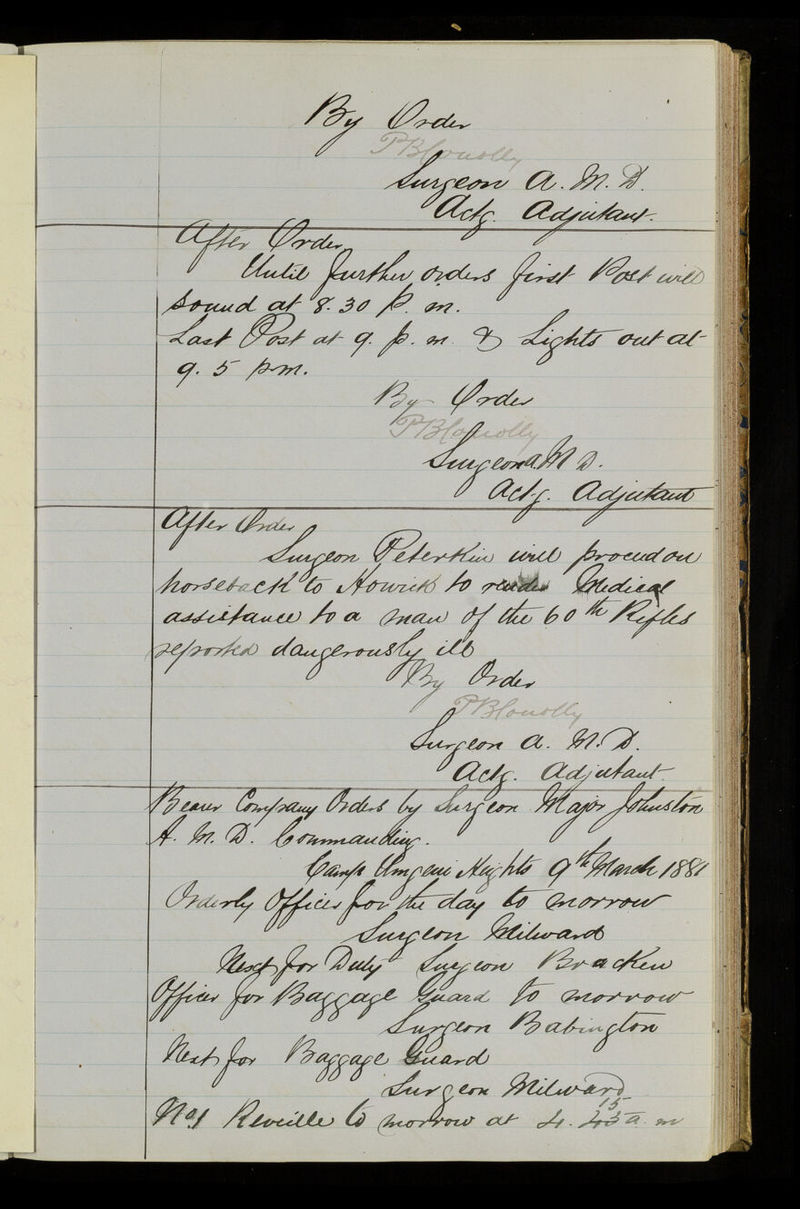 By Order
PB Conolly
Surgeon A. M. D.
Actg. Adjutant.
After Order
Until further orders first Post will
sound at 8.30 P. m.
Last Post at 9. p. m. & Lights out at
9. 5 p.m.
By Order
PB Conolly
Surgeon A M D.
Actg. Adjutant
After Order
Surgeon Peterkin will proceed on
horseback to Howick to render Medical
assistance to a man of the 60th Rifles
reported dangerously ill
By Order
PB Conolly
Surgeon A. M. D.
Actg. Adjutant
Bearer Company Orders by Surgeon Major Johnston
A. M. D. Commanding.
Camp Umgeni Heights 9th March 1881
Orderly Officer for the day to morrow
Surgeon Milward
Next for Duty Surgeon Bracken
Officer for Baggage Guard to morrow
Surgeon Babington
Next for Baggage Guard
Surgeon Milward
15
No1 Reveille to morrow at 4. 45 a. m